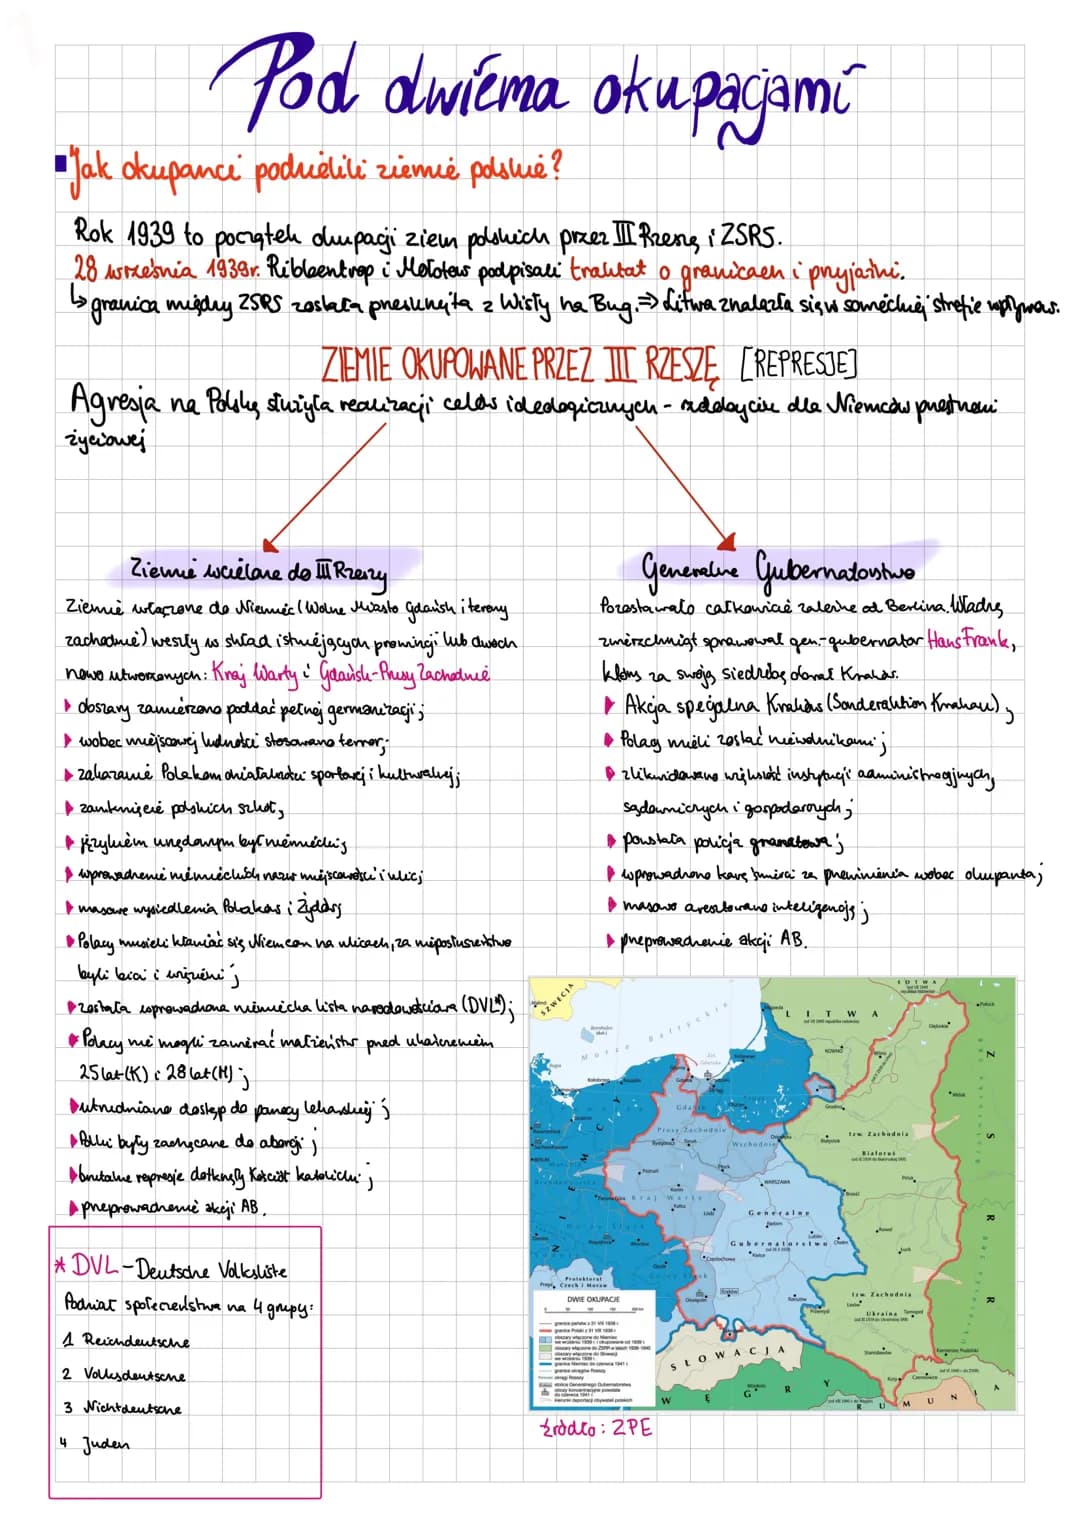 Pod dwiema okupacjami
Jak okupanci podzielili ziemie polskie?
Rok 1939 to początek okupacji ziem polskich przez III Rzeszę i ZSRS.
28 września 1939r. Ribbentrop i Mołotow podpisali traktat o granicach i przyjaźni.
↳ granica między ZSRS została przesunięta z Wisły na Bug. ⇒ Litwa znalazła się w sowieckiej strefie wpływów.
ZIEMIE OKUPOWANE PRZEZ III RZESZĘ [REPRESJE]
Agresja na Polskę służyła realizacji celów ideologicznych - zdobycie dla Niemców przestrzeni
życiowej
Ziemie wcielone do III Rzeszy
Ziemie włączone do Niemiec (Wolne Miasto Gdańsk i tereny
zachodnie) weszły w skład istniejących prowincji lub dwóch
nowo utworzonych: Kraj Warty i Gdańsk-Prusy Zachodnie
obszary zamierzano poddać pełnej germanizacji;
wobec miejscowej ludności stosowano terror;
zakazanie Polakom działalności sportowej i kulturalnej;
zamknięcie polskich szkół;
językiem urzędowym był niemiecki;
wprowadzenie niemieckich nazw miejscowości i ulic;
masowe wysiedlenia Polaków i Żydów;
Polacy musieli kłaniać się Niemcom na ulicach, za nieposłuszeństwo
byli bici i więzieni;
została wprowadzona niemiecka lista narodowościowa (DVL*);
Polacy nie mogli zawierać małżeństw przed ukończeniem
25 lat (K) i 28 lat (M);
utrudniano dostęp do pomocy lekarskiej;
Polki były zachęcane do aborcji;
brutalne represje dotknęły Kościół katolicki;
przeprowadzenie akcji AB.
* DVL - Deutsche Volksliste
Podział społeczeństwa na 4 grupy:
1 Reichdeutsche
2 Volksdeutsche
3 Nichtdeutsche
4 Juden
Generalne Gubernatorstwo
Pozostawało całkowicie zależne od Berlina. Władzę
zwierzchnią sprawował gen.-gubernator Hans Frank,
który za swoją siedzibę obrał Kraków.
Akcja specjalna Kraków (Sonderaktion Krakau);
Polacy mieli zostać niewolnikami;
zlikwidowano większość instytucji administracyjnych,
sądowniczych i gospodarczych;
powstała policja granatowa;
wprowadzono karę śmierci za przewinienia wobec okupanta;
masowo aresztowano inteligencję;
przeprowadzenie akcji AB.
SZWECJA
Morze Bałtyckie
LITWA
ŁOTWA
KOWNO
Gdańsk
Prusy Zachodnie
Wschodnie
Białystok
tzw. Zachodnia
Białoruś
Mińsk
Połock
Poznań
Płock
WARSZAWA
Kraj Warty
Łódź
Generalne
Gubernatorstwo
Radom
Lublin
Chełm
Kielce
Częstochowa
Brześć
Pińsk
Kowel
Łuck
Protektorat
Czech i Moraw
Kraków
Rzeszów
Przemyśl
Lwów
tzw. Zachodnia
Ukraina
Tarnopol
Stanisławów
Kamieniec Podolski
Czerniowce
NIEMCY
ZSRR
SŁOWACJA
WĘGRY
RUMUNIA
DWIE OKUPACJE
źródło: ZPE